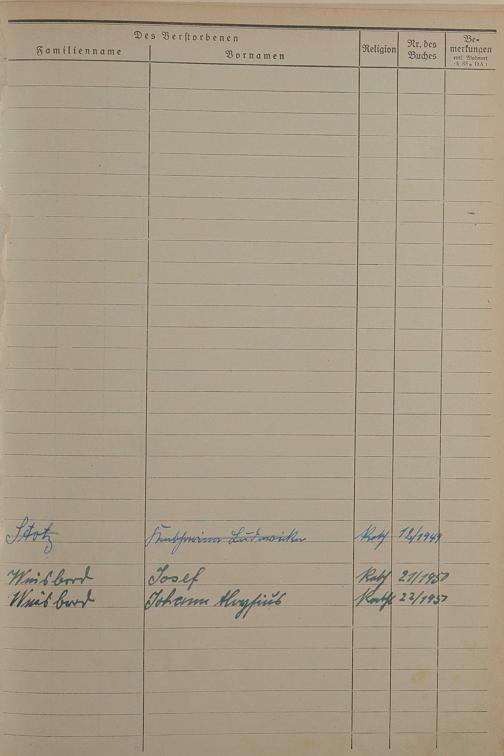 Des Verstorbenen
Familienname Vornamen Religion Nr. des Buches Be-merkungen
Stotz Katharina Ludowika Kath 12/1949
Weisbord Josef Kath 21/1950
Weisbord Johann Aloysius Kath 22/1950